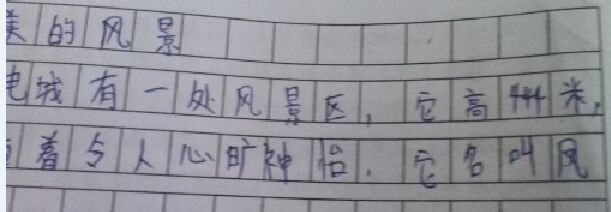 美的风景
电城有一处风景区，它高444米，
着与人心旷神怡．它名叫风